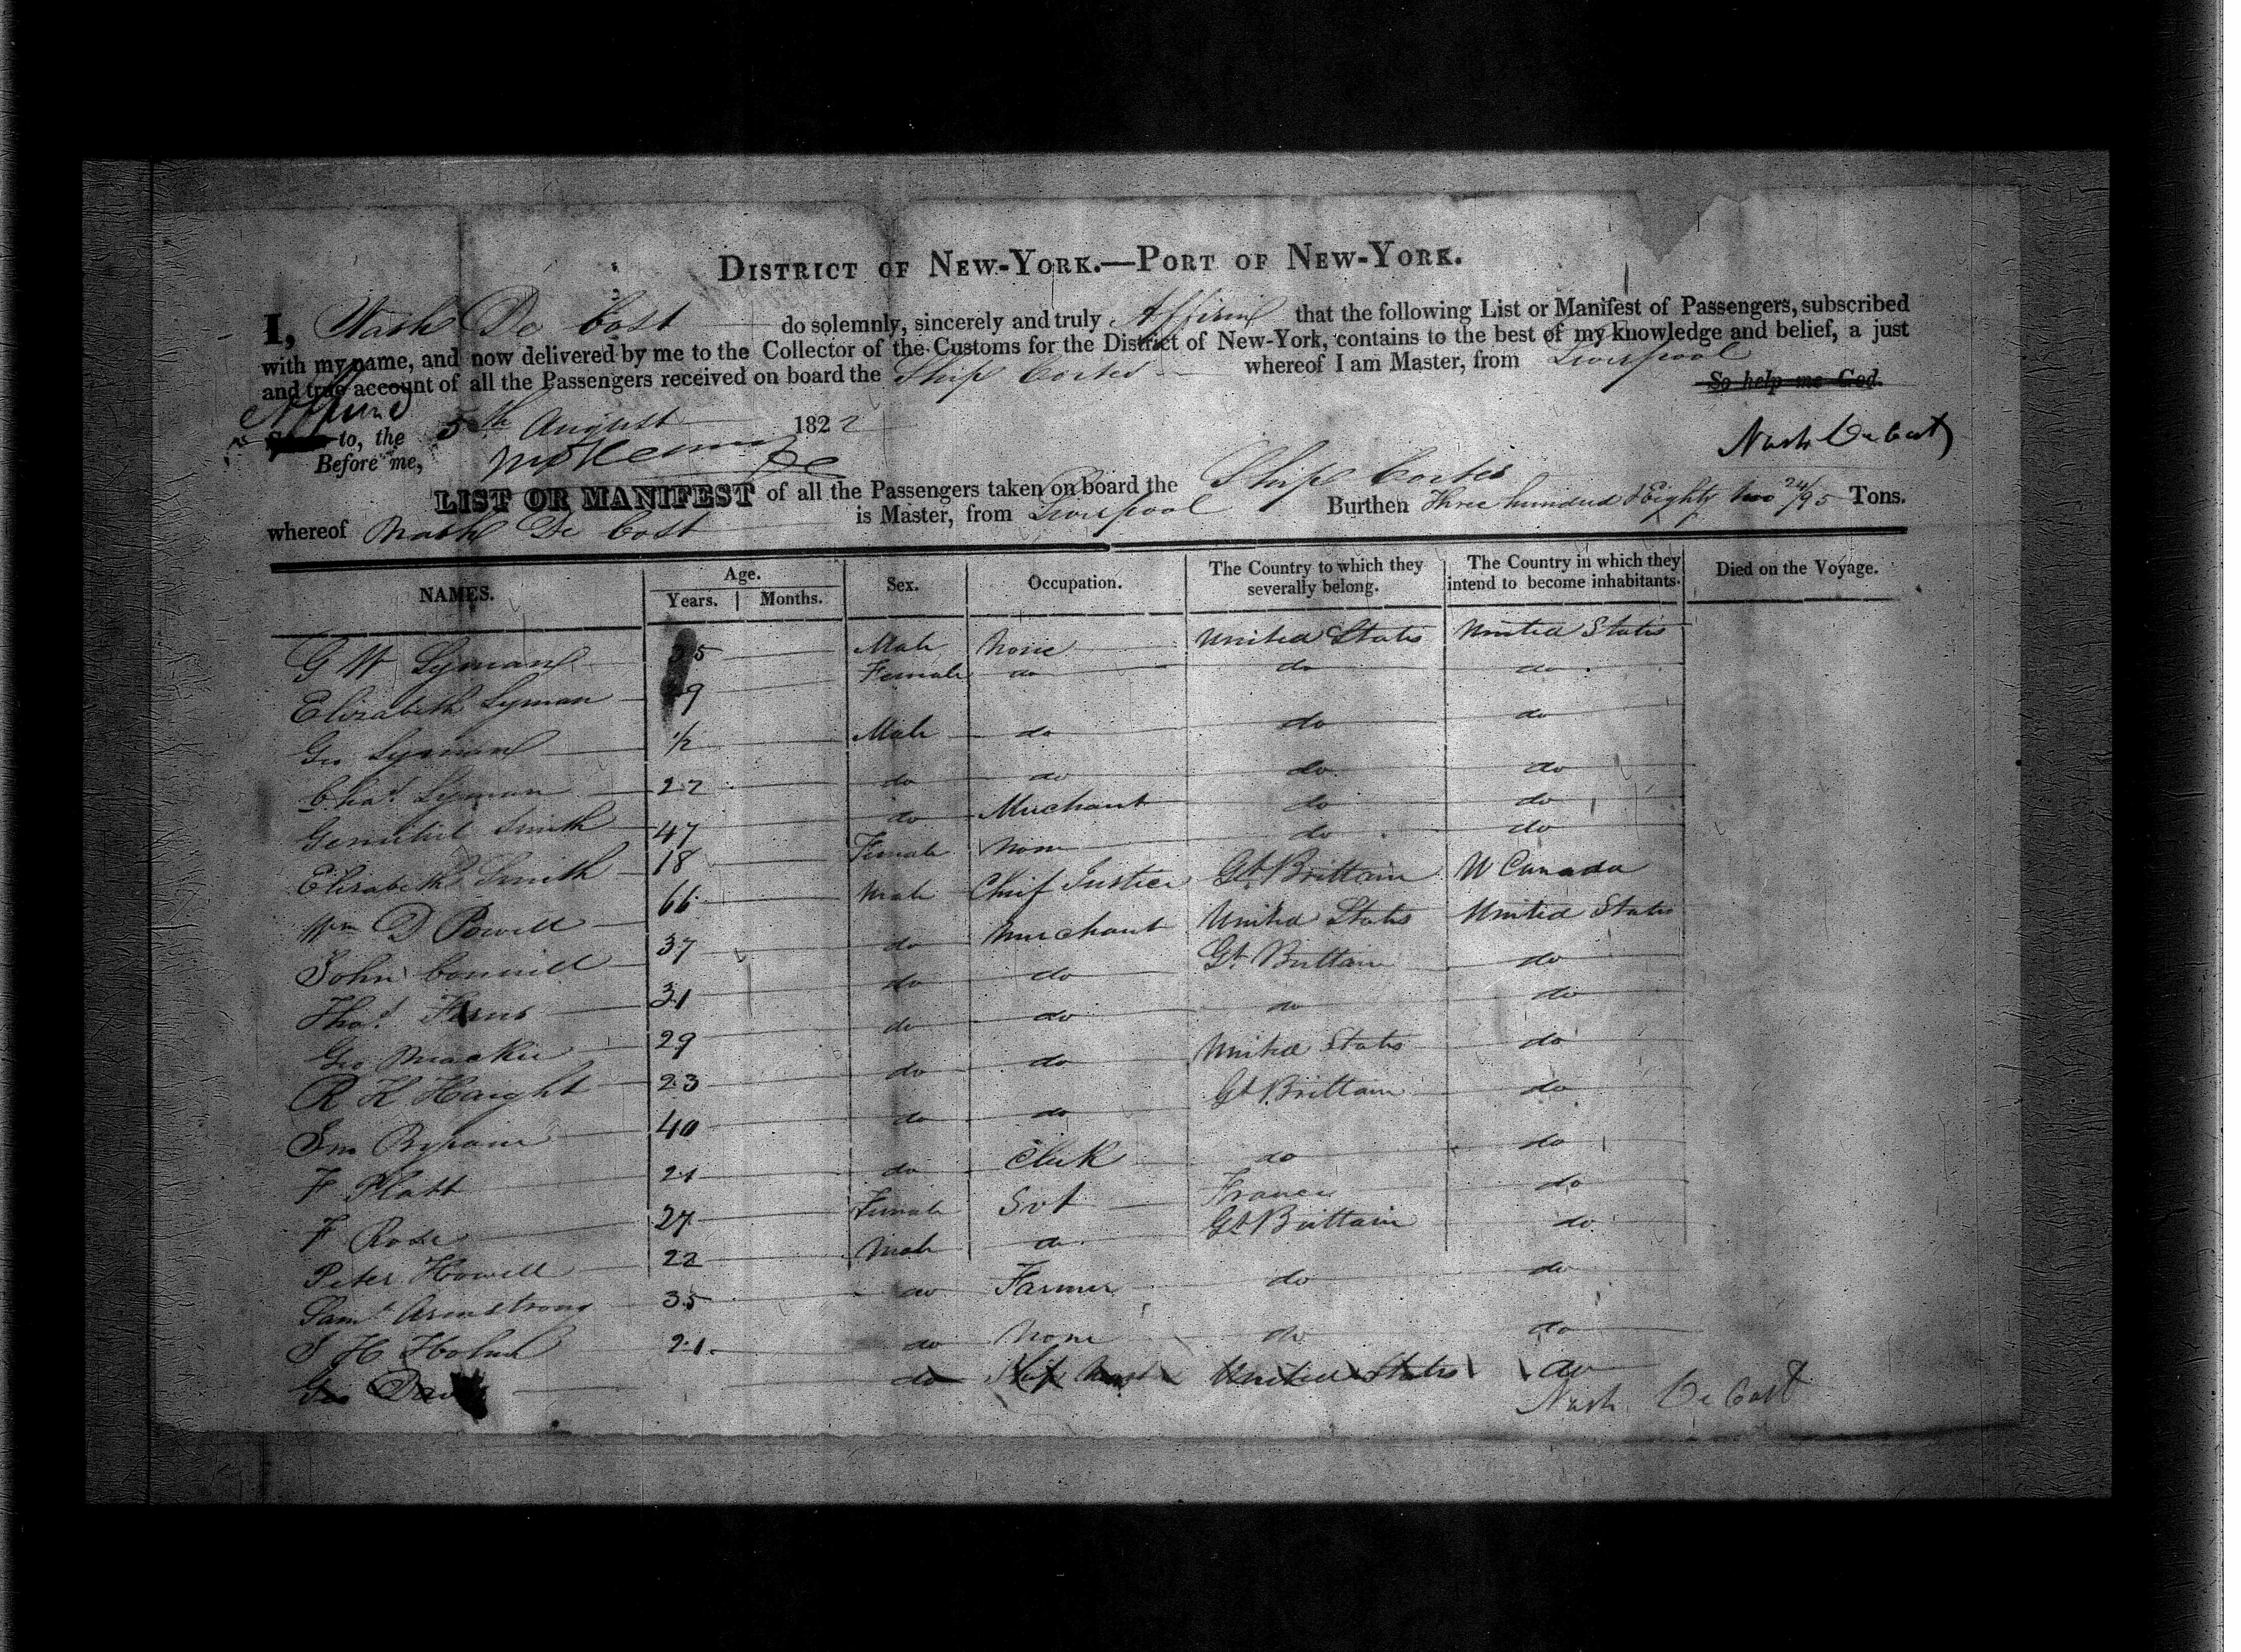 DISTRICT OF NEW-YORK.—PORT OF NEW-YORK.
I, Nash De Cost do solemnly, sincerely and truly Affirm that the following List or Manifest of Passengers, subscribed
with my name, and now delivered by me to the Collector of the Customs for the District of New-York, contains to the best of my knowledge and belief, a just
and true account of all the Passengers received on board the Ship Cortes whereof I am Master, from Liverpool
So help me God.
Affirmd
to, the 5th August 1822
Before me,
Nash De Cost
LIST OR MANIFEST of all the Passengers taken on board the Ship Cortes Burthen Three hundred & Eighty two 24/95 Tons.
whereof Nash De Cost is Master, from Liverpool
NAMES. Age. Years. Months. Sex. Occupation. The Country to which they severally belong. The Country in which they intend to become inhabitants. Died on the Voyage.
G W Lyman 35 Male None United States United States
Elizabeth Lyman 9 Female do do do
Geo Lyman 1/2 Male do do do
Chas. Lyman 22 do do do do
Smith 47 do Merchant do do
Elizabeth Smith 18 Female None do do
Wm D Powell 66 Male Chief Justice Gt Brittain U Canada
John 37 do Merchant United States United States
Thos. 31 do do Gt Brittain do
Geo Mackie 29 do do do do
R K Haight 23 do do United States do
Jno 40 do do Gt Brittain do
F Platt 21 do Clerk do do
F Rose 27 Female Svt France do
Peter Howell 22 Male do Gt Brittain do
Saml Armstrong 35 do Farmer do do
S H Holme 21 do None do do
Geo Davis do United States do
Nash De Cost